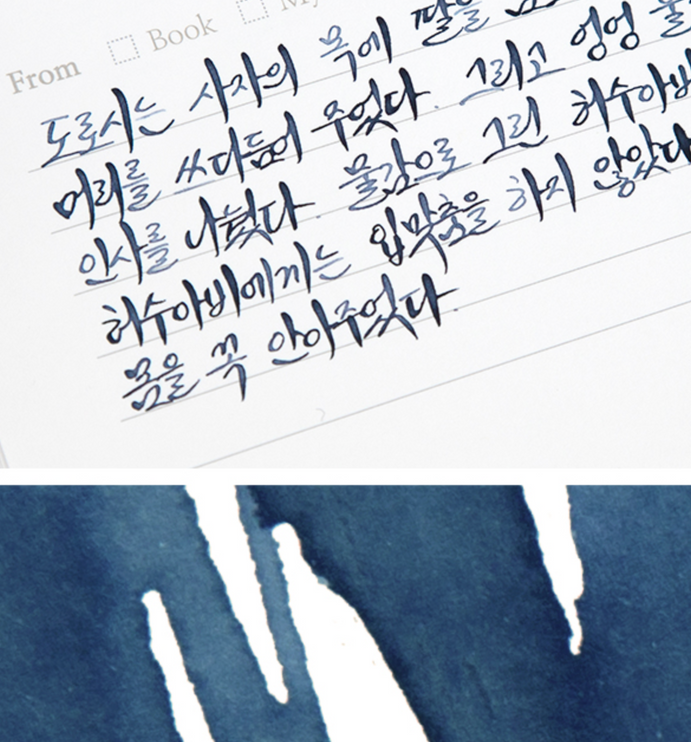 From Book My
도로시는 사자의 목에 팔을
머리를 쓰다듬어 주었다. 그리고 엉엉
인사를 나눴다. 물감으로 그린 허수아비
허수아비에게는 입맞춤을 하지 않았다
몸을 꼭 안아주었다.